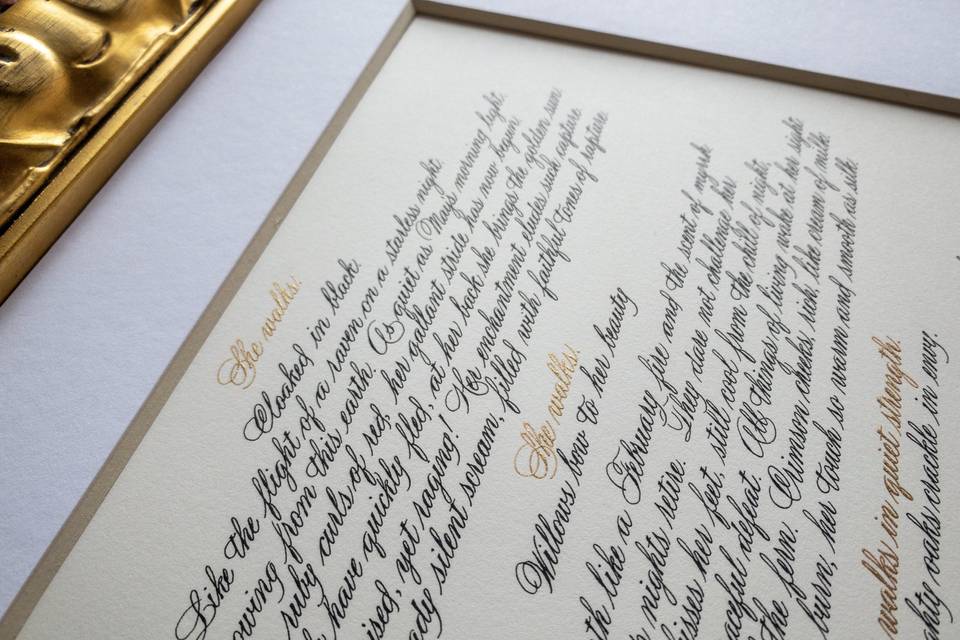 She walks.
Cloaked in black.
Like the flight of a raven on a starless night.
from this earth. As quiet as Mays morning light.
ruby curls of red, her gallant stride has now begun.
have quickly fled, at her back she brings the golden sun
yet raging! Her enchantment eludes such rapture
silent scream, filled with faithful tones of rapture
She walks.
Willows bow to her beauty
like a February fire and the scent of myrrh
nights retire. They dare not challenge her
her feet, still cool from the chill of night.
defeat. All things of living wake at her sight
the fern. Crimson cheeks sick like cream of milk
burn, her touch so warm and smooth as silk.
walks in quiet strength.
oaks cradle in awe